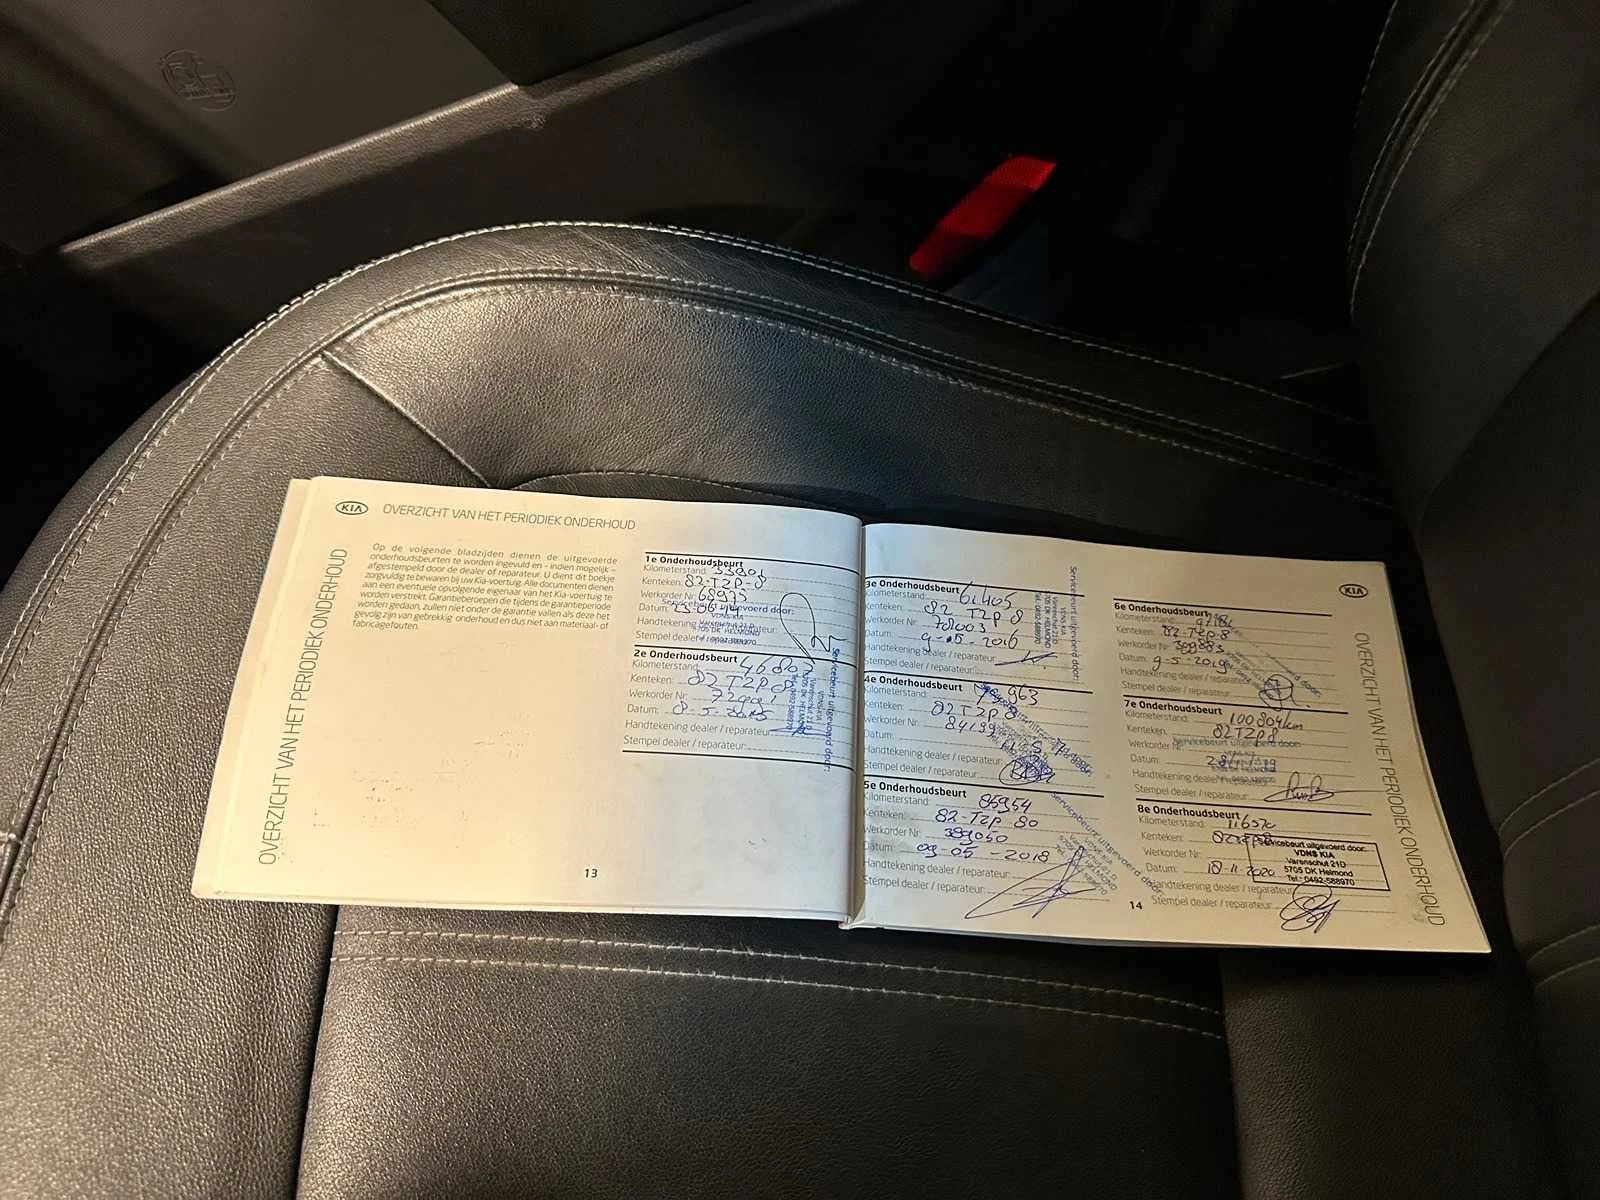 KIA OVERZICHT VAN HET PERIODIEK ONDERHOUD
OVERZICHT VAN HET PERIODIEK ONDERHOUD
Op de volgende bladzijden dienen de uitgevoerde
onderhoudsbeurten te worden ingevuld en - indien mogelijk -
afgestempeld door de dealer of reparateur. U dient dit boekje
zorgvuldig te bewaren bij uw Kia-voertuig. Alle documenten dienen
aan een eventuele opvolgende eigenaar van het Kia-voertuig te
worden verstrekt. Garantieberoepen die tijdens de garantieperiode
worden gedaan, zullen niet onder de garantie vallen als deze het
gevolg zijn van gebrekkig onderhoud en dus niet aan materiaal- of
fabricagefouten.
1e Onderhoudsbeurt
Kilometerstand:
Kenteken: 82-TZP-8
Werkorder Nr: 68975
Datum:
Handtekening dealer / reparateur:
Stempel dealer / reparateur:
Servicebeurt uitgevoerd door:
VDNS KIA
Varenschut 21 D
5705 DK HELMOND
Tel.: 0492-588970
2e Onderhoudsbeurt
Kilometerstand:
Kenteken: 82 TZP 8
Werkorder Nr:
Datum: 8-5-2015
Handtekening dealer / reparateur:
Stempel dealer / reparateur:
Servicebeurt uitgevoerd door:
VDNS KIA
Varenschut 21 D
5705 DK HELMOND
Tel.: 0492-588970
13
3e Onderhoudsbeurt
Kilometerstand: 61405
Kenteken: 82 TZP 8
Werkorder Nr: 78003
Datum: 9-05-2016
Handtekening dealer / reparateur:
Stempel dealer / reparateur:
Servicebeurt uitgevoerd door:
VDNS KIA
Varenschut 21 D
5705 DK HELMOND
Tel.: 0492-588970
4e Onderhoudsbeurt
Kilometerstand:
Kenteken: 82 TZP 8
Werkorder Nr: 84199
Datum:
Handtekening dealer / reparateur:
Stempel dealer / reparateur:
5e Onderhoudsbeurt
Kilometerstand: 86954
Kenteken: 82-TZP 80
Werkorder Nr: 389050
Datum: 09-05-2018
Handtekening dealer / reparateur:
Stempel dealer / reparateur:
Servicebeurt uitgevoerd door:
14
KIA
OVERZICHT VAN HET PERIODIEK ONDERHOUD
6e Onderhoudsbeurt
Kilometerstand:
Kenteken: 82-TZP 8
Werkorder Nr:
Datum: 9-5-2019
Handtekening dealer / reparateur:
Stempel dealer / reparateur:
7e Onderhoudsbeurt
Kilometerstand: 100804km
Kenteken: 82TZP8
Werkorder Nr:
Servicebeurt uitgevoerd door:
Datum:
Handtekening dealer / reparateur:
Stempel dealer / reparateur:
8e Onderhoudsbeurt
Kilometerstand: 116570
Kenteken:
Werkorder Nr:
Datum: 18-11-2020
Handtekening dealer / reparateur:
Stempel dealer / reparateur:
Servicebeurt uitgevoerd door:
VDNS KIA
Varenschut 21D
5705 DK Helmond
Tel.: 0492-588970